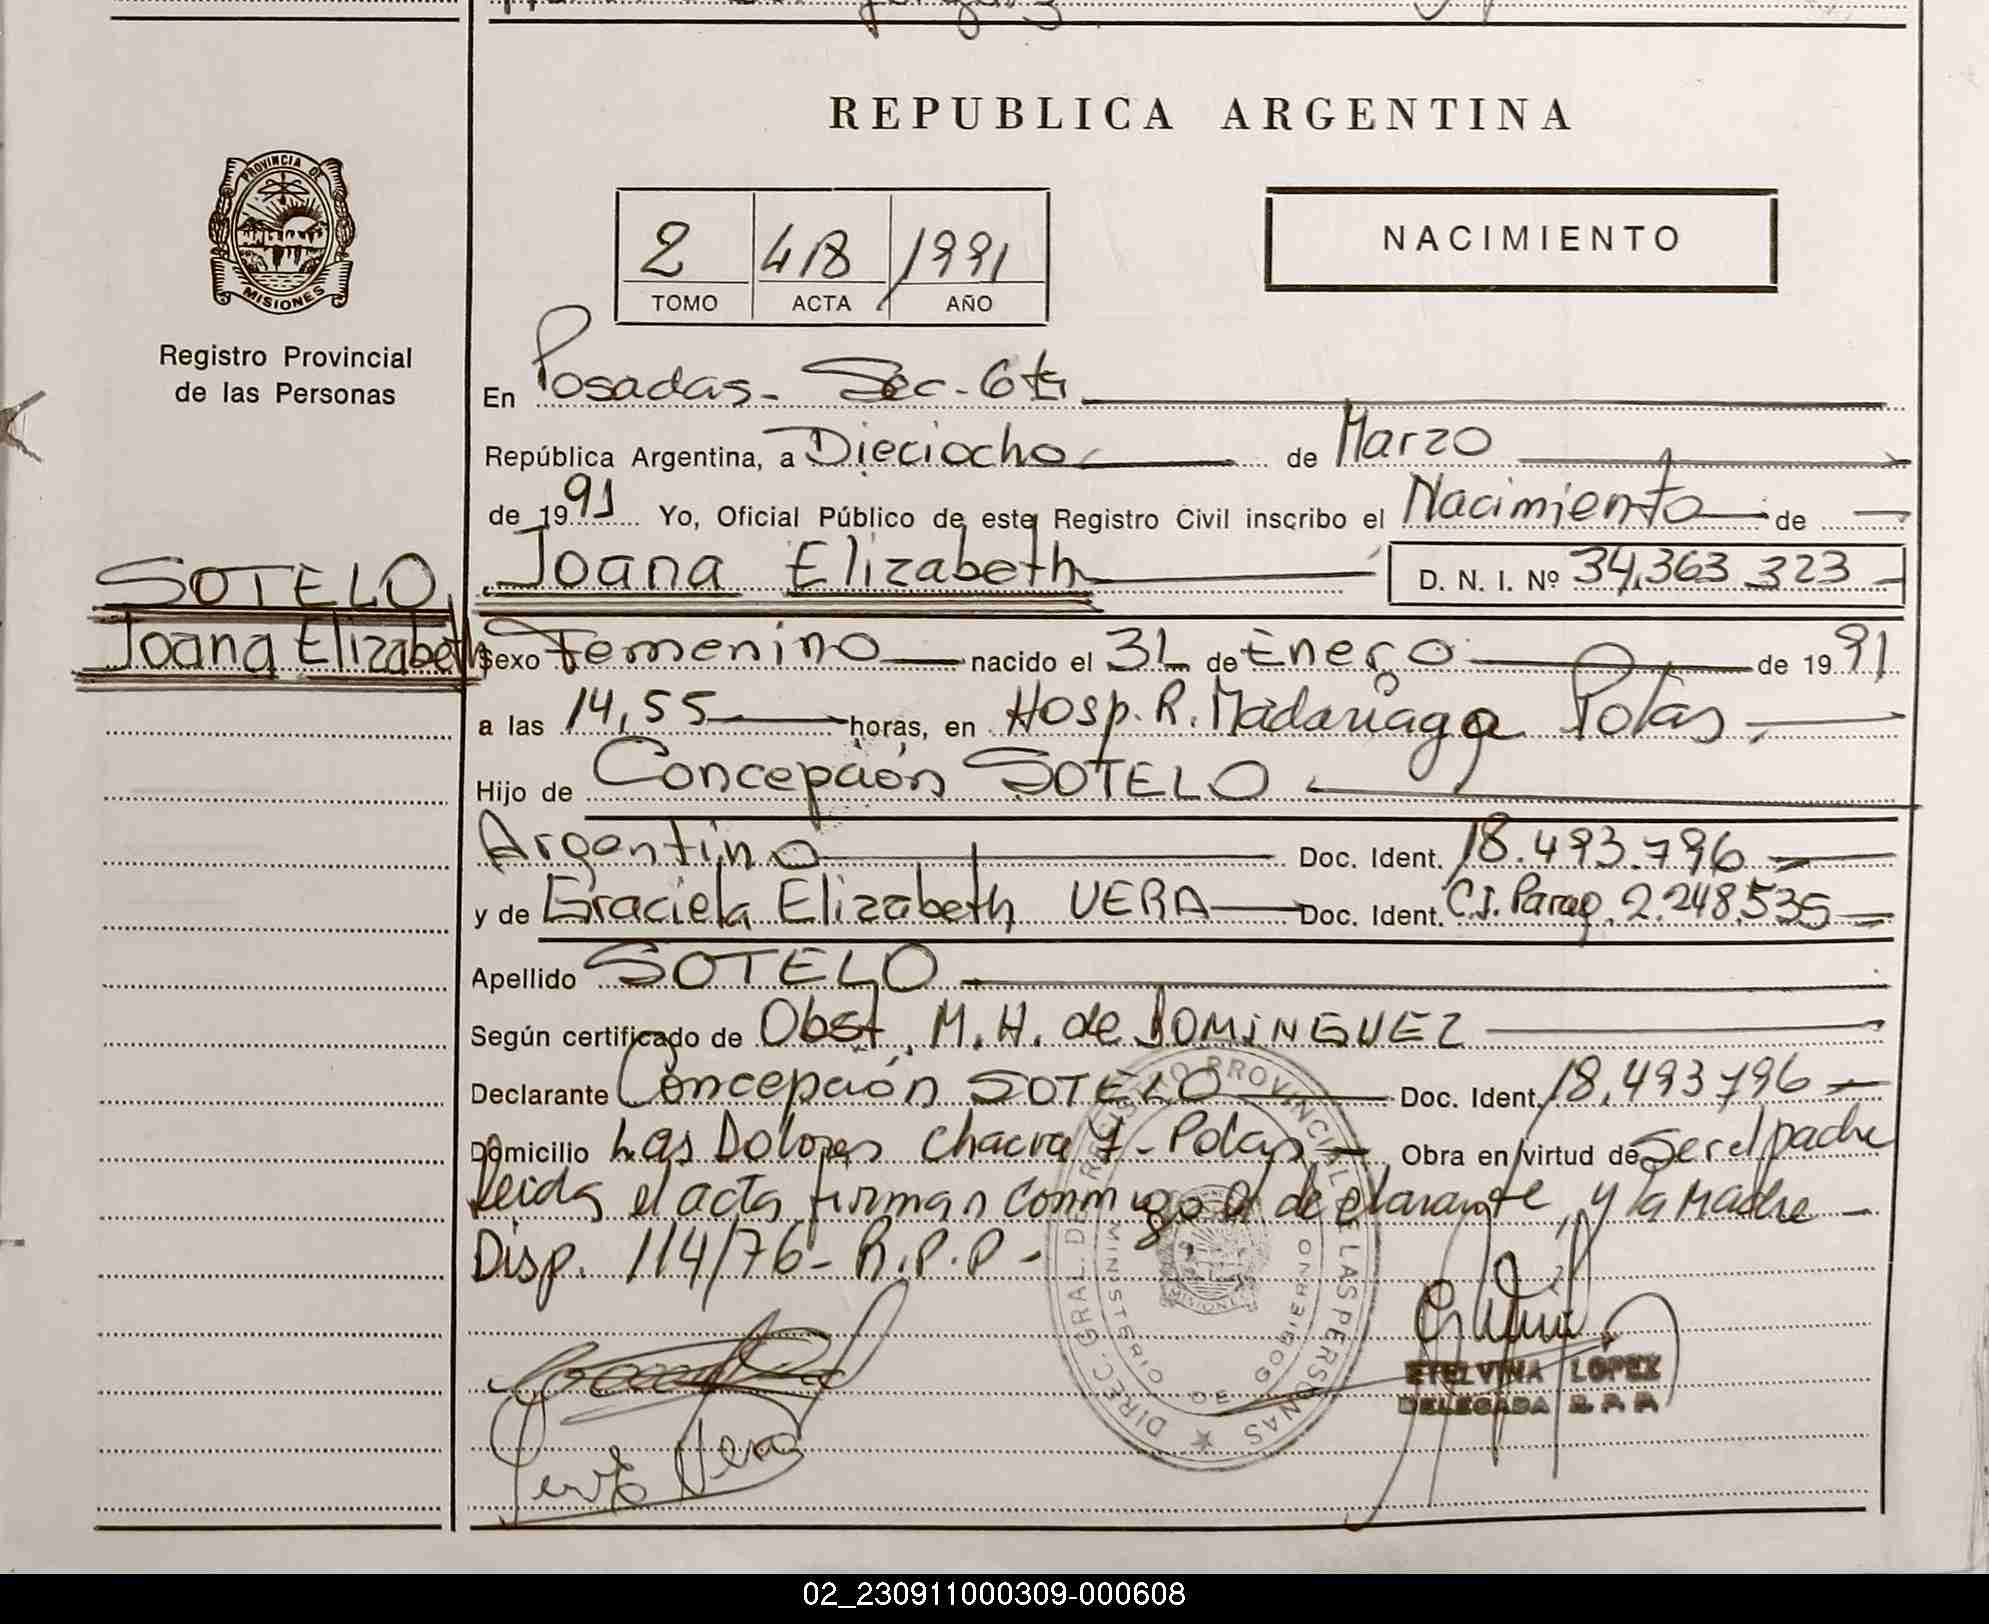 REPUBLICA ARGENTINA
PROVINCIA DE
MISIONES
Registro Provincial
de las Personas
2 418 1991
TOMO ACTA AÑO
NACIMIENTO
En Posadas - Sec. 6ta
República Argentina, a Dieciocho de Marzo
de 1991 Yo, Oficial Público de este Registro Civil inscribo el Nacimiento de
Joana Elizabeth D. N. I. Nº 34.363.323
SOTELO,
Joana Elizabeth
Sexo Femenino nacido el 31 de Enero de 1991
a las 14,55 horas, en Hosp. R. Madariaga Pdas.
Hijo de Concepción SOTELO
Argentino Doc. Ident. 18.493.796
y de Graciela Elizabeth VERA Doc. Ident. C.I. Parag. 2.248.535
Apellido SOTELO
Según certificado de Obst. M. H. de DOMINGUEZ
Declarante Concepción SOTELO Doc. Ident. 18.493796
Domicilio Las Dolores Chacra - Pdas Obra en virtud de Ser el padre
Leida el acta firman conmigo el declarante y la Madre
Disp. 114/76 - R.P.P -
DIREC. GRAL. DE REGISTRO PROVINCIAL DE LAS PERSONAS
MINISTERIO DE GOBIERNO
MISIONES
ETELVINA LOPEZ
DELEGADA R. P. P.
Vera
02_230911000309-000608